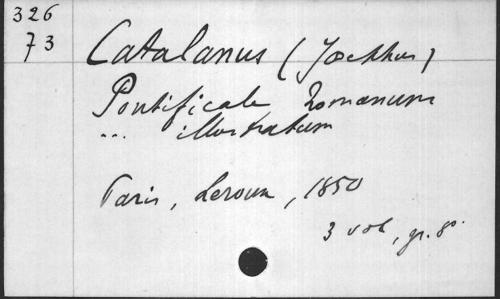 326
73
Catalanus (Josephus)
Pontificale Romanum
... illustratum
Paris, Leroux, 1850
3 vol, gr. 8º.